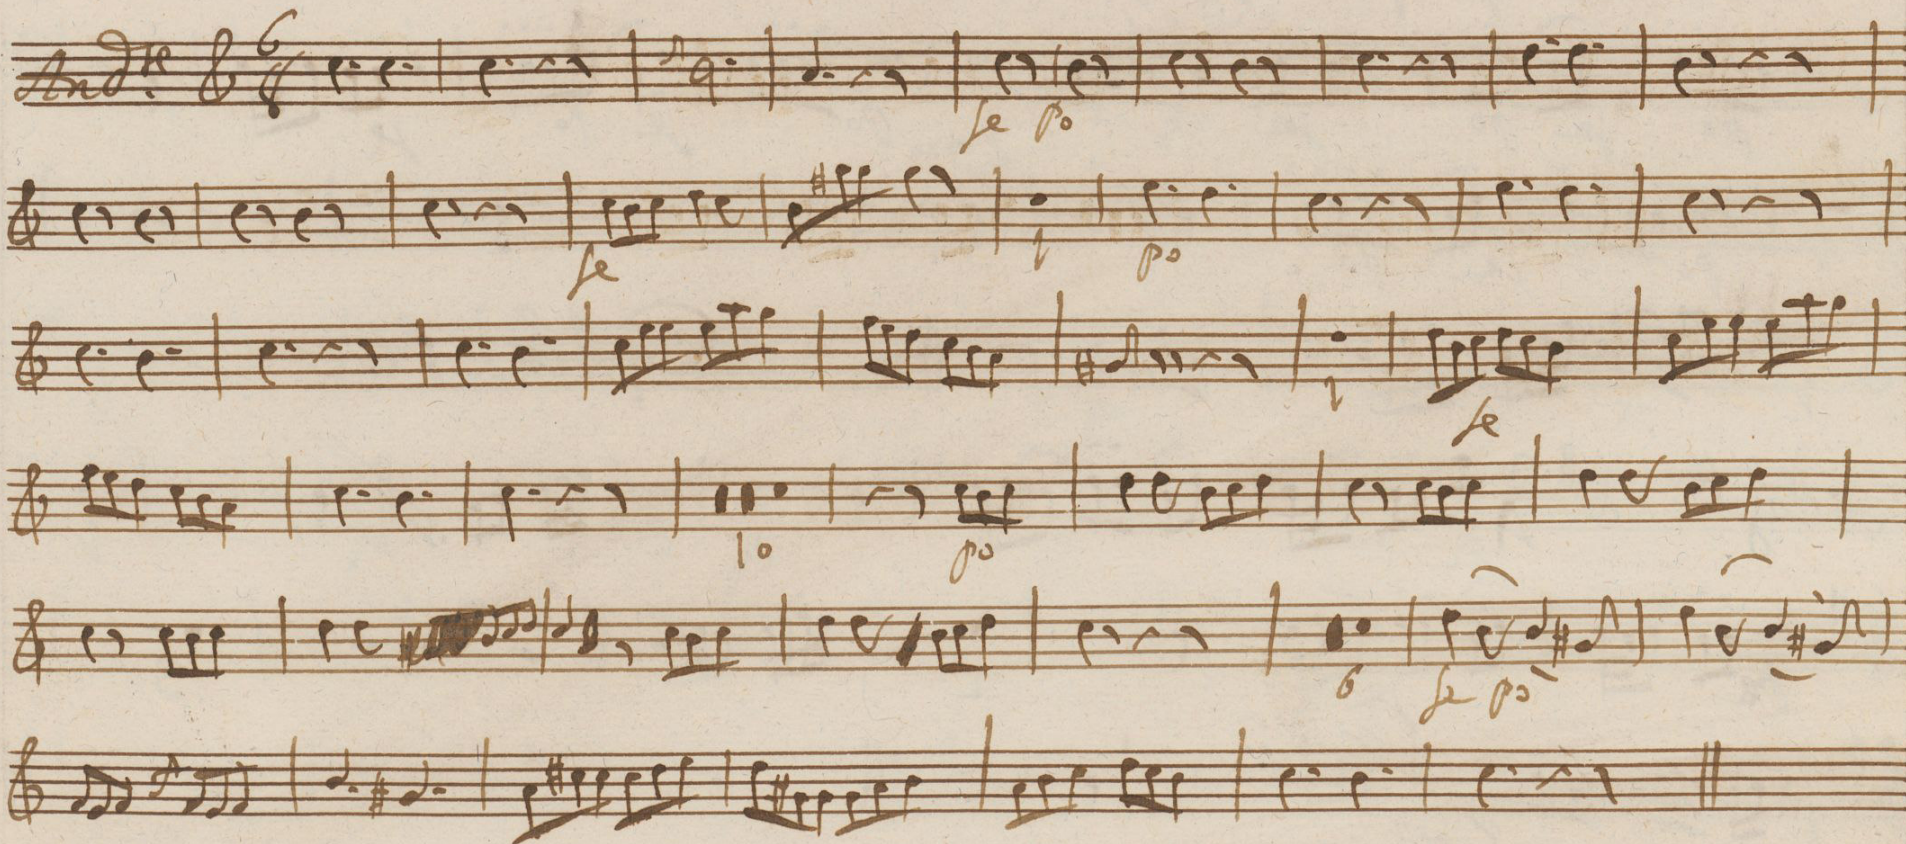 And.te 6 8
fe po
fe 1 po
1 fe
10 po
6 fe po